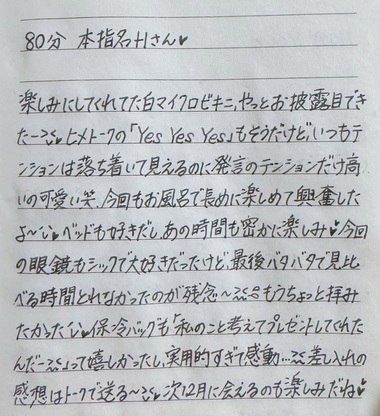 80分 本指名Hさん♥
楽しみにしてくれてた白マイクロビキニ、やっとお披露目でき
たー>̫<♥ヒメトークの「Yes Yes Yes」もそうだけど、いつもテ
ンションは落ち着いて見えるのに発言のテンションだけ高
いの可愛い笑、今回もお風呂で長めに楽しめて興奮した
よ〜♥ベッドも好きだし、あの時間も密かに楽しみ♥今回
の眼鏡もシックで大好きだったけど、最後バタバタで見比
べる時間とれなかったのが残念〜もうちょっと拝み
たかった♥保冷バッグも「私のこと考えてプレゼントしてくれた
んだー」って嬉しかったし、実用的すぎて感動…差し入れの
感想はトークで送る〜♥次12月に会えるのも楽しみだね♥